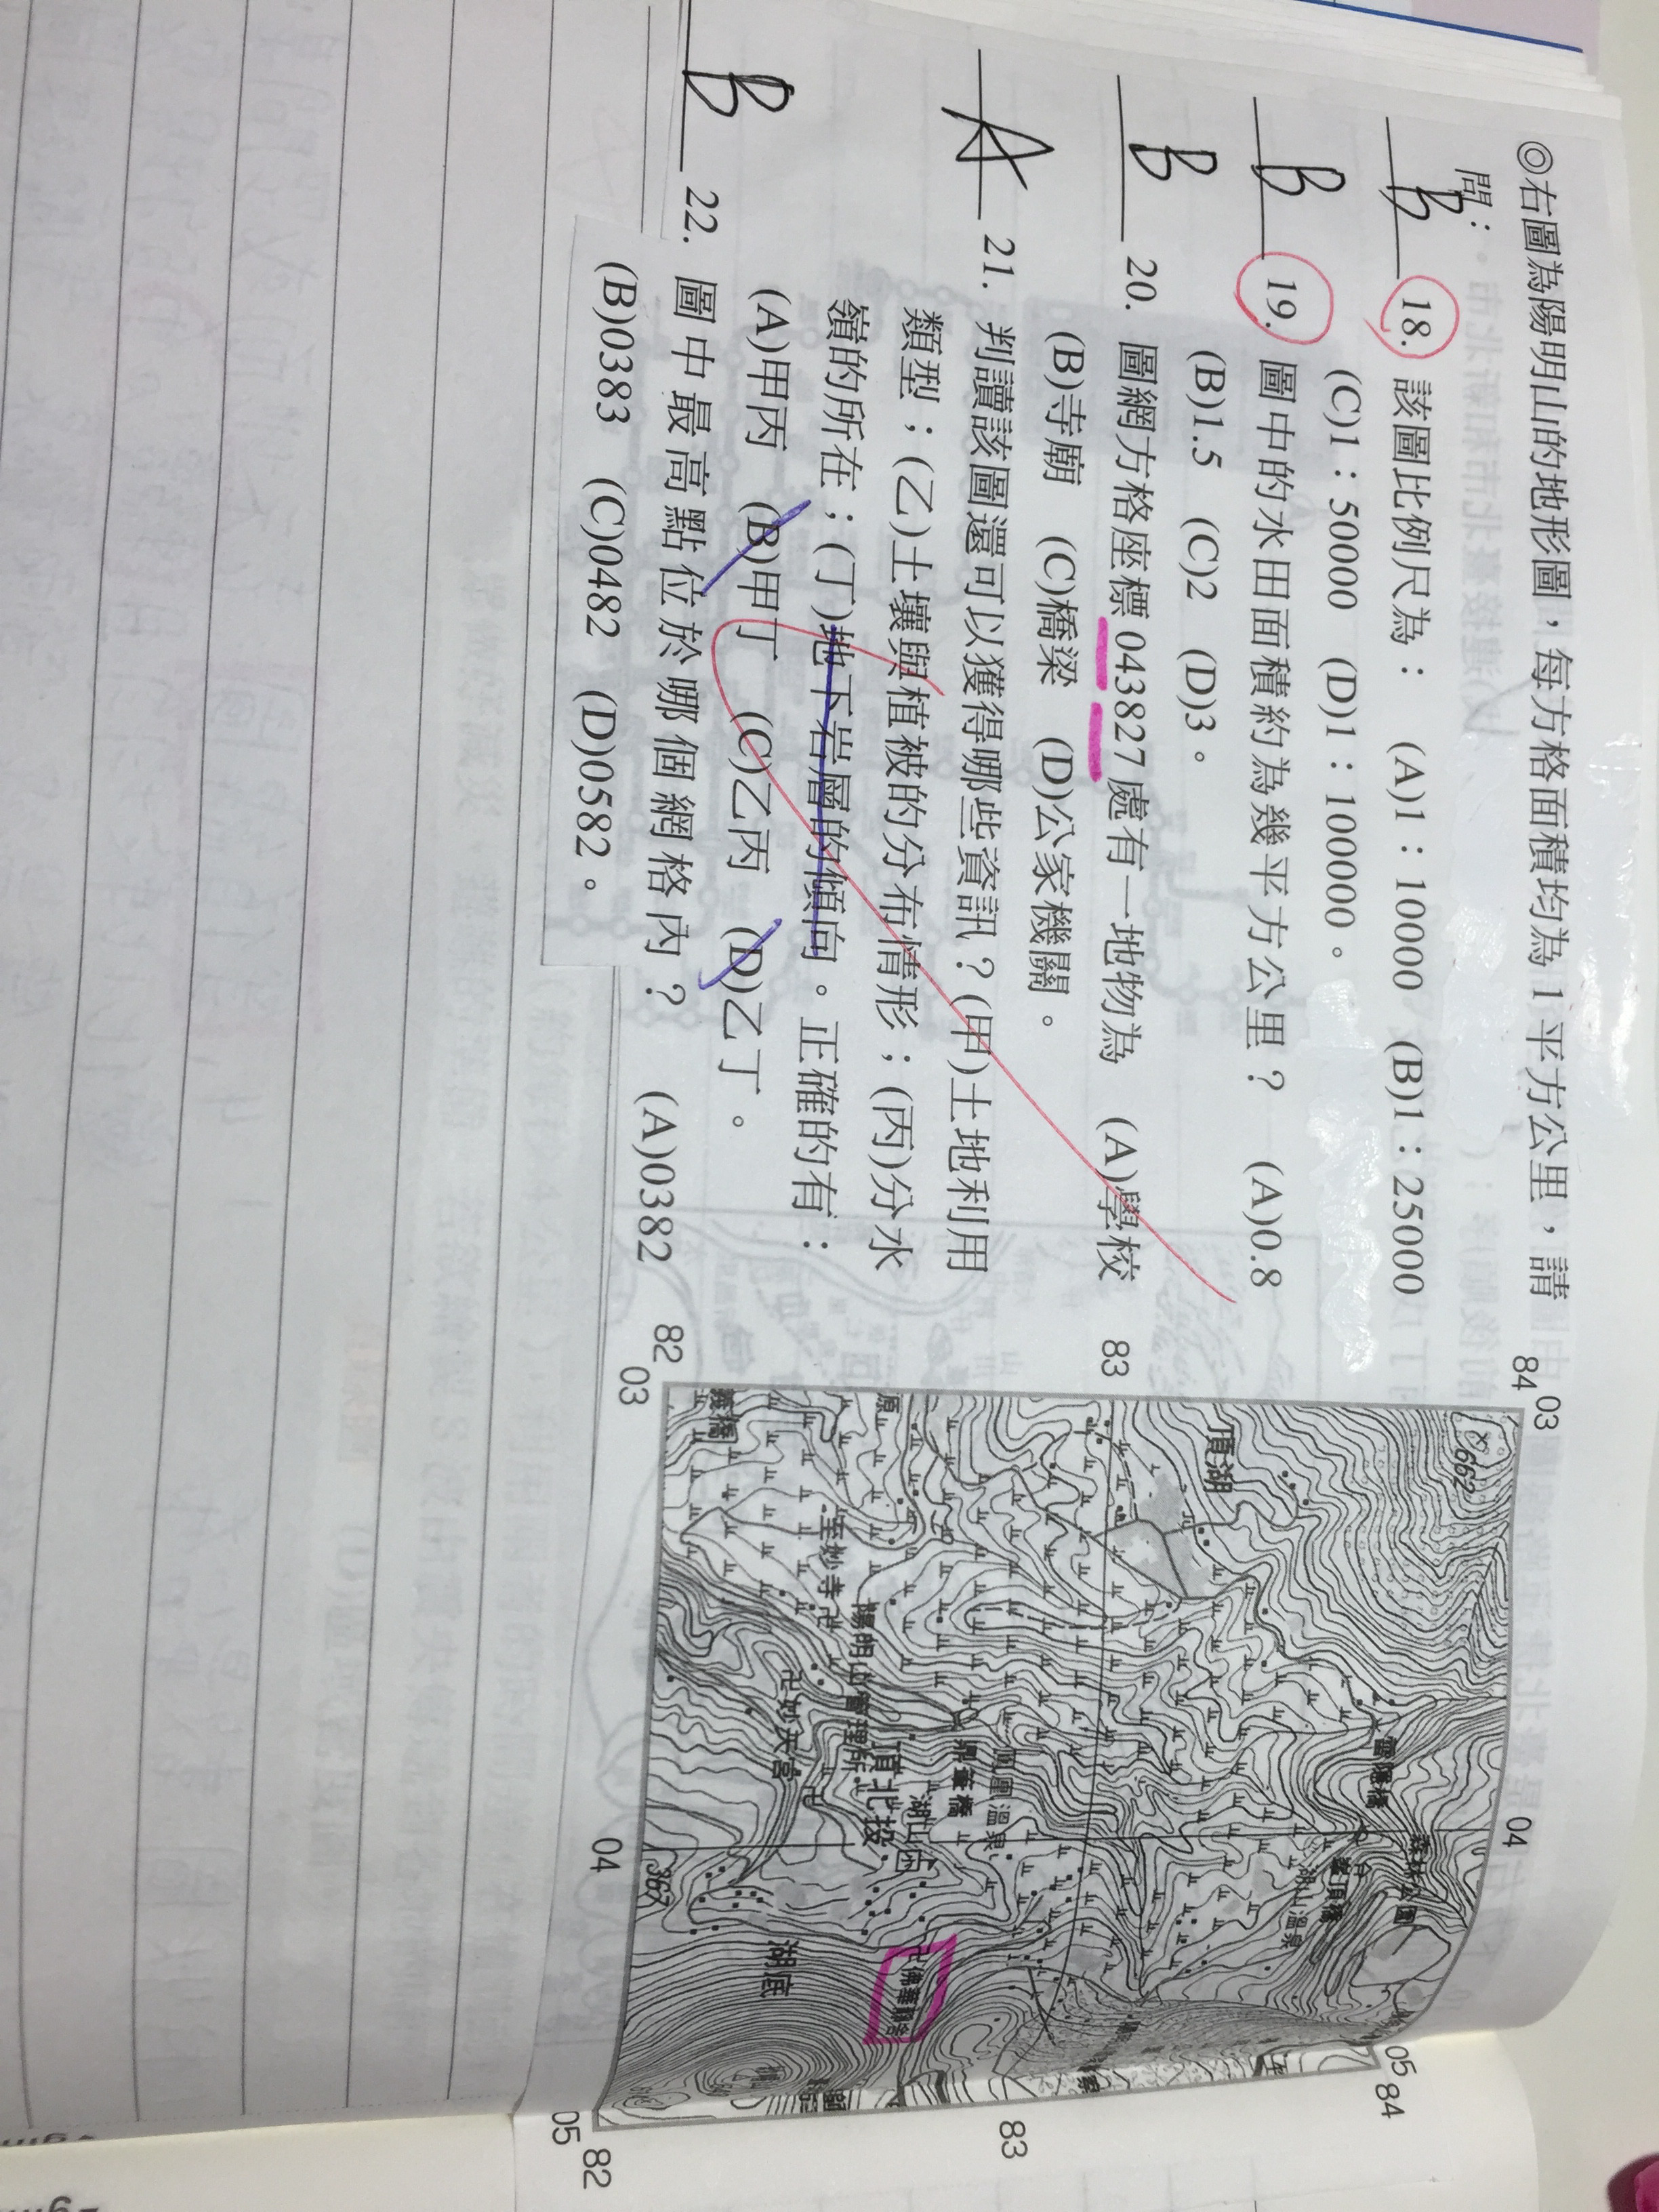 ◎右圖為陽明山的地形圖，每方格面積均為1平方公里，請
問：
B 18. 該圖比例尺為： (A)1：10000 (B)1：25000
(C)1：50000 (D)1：100000。
B 19. 圖中的水田面積約為幾平方公里？ (A)0.8
(B)1.5 (C)2 (D)3。
B 20. 圖網方格座標043827處有一地物為 (A)學校
(B)寺廟 (C)橋梁 (D)公家機關。
A 21. 判讀該圖還可以獲得哪些資訊？(甲)土地利用
類型；(乙)土壤與植被的分布情形；(丙)分水
嶺的所在；(丁)地下岩層的傾向。正確的有：
(A)甲丙 (B)甲丁 (C)乙丙 (D)乙丁。
B 22. 圖中最高點位於哪個網格內？ (A)0382
(B)0383 (C)0482 (D)0582。
03
04
05
84
84
662
頂湖
雷隱橋
森林公園
龍頂橋
湖山溫泉
83
83
鳳凰溫泉
鼎筆橋
湖山
頂北投
陽明山管理所
至妙寺
妙天宮
原
義橋
湖底
367
82
82
03
04
05